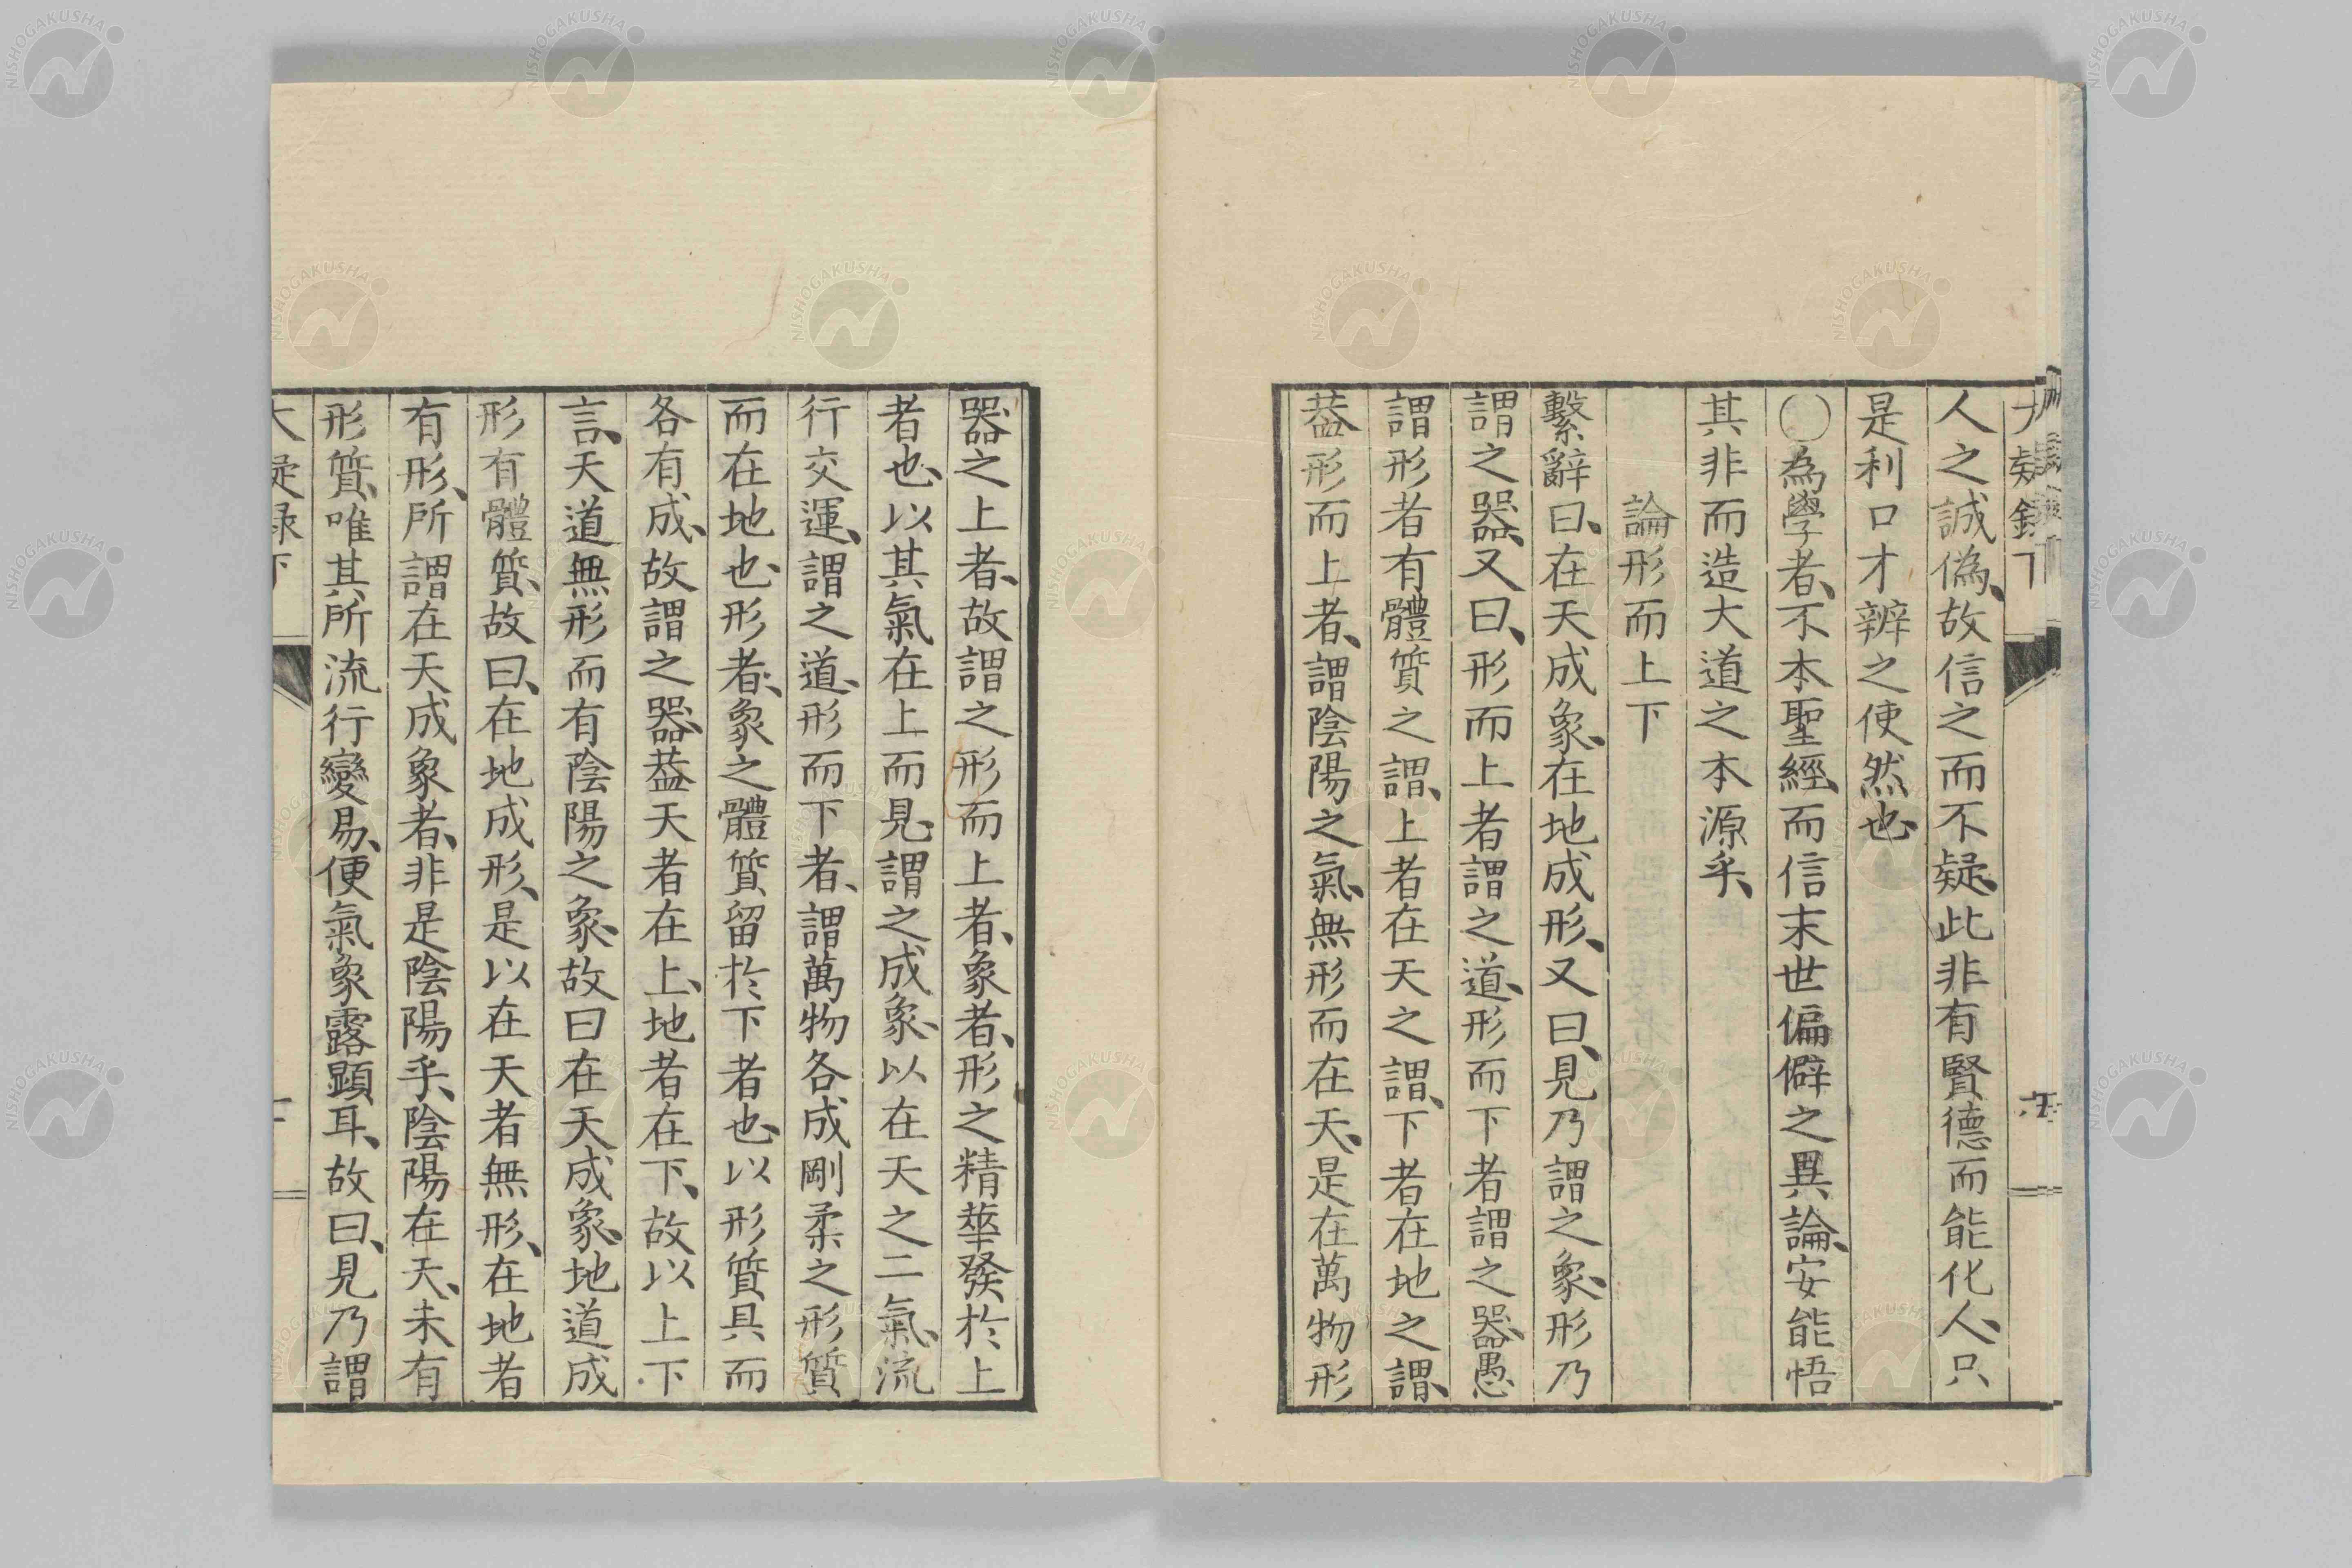 大疑錄下
人之誠僞、故信之而不疑、此非有賢德而能化人、只
是利口才辨之使然也、
〇為學者、不本聖經、而信末世偏僻之異論、安能悟
其非而造大道之本源乎、
論形而上下
繫辭曰、在天成象、在地成形、又曰、見乃謂之象、形乃
謂之器、又曰、形而上者謂之道、形而下者謂之器、愚
謂形者有體質之謂、上者在天之謂、下者在地之謂、
葢形而上者、謂陰陽之氣、無形而在天、是在萬物形
器之上者、故謂之形而上者、象者、形之精華發於上
者也、以其氣在上而見、謂之成象、以在天之二氣、流
行交運、謂之道、形而下者、謂萬物各成剛柔之形質
而在地也、形者、象之體質留於下者也、以形質具而
各有成、故謂之器、葢天者在上、地者在下、故以上下
言、天道無形而有陰陽之象、故曰在天成象、地道成
形有體質、故曰、在地成形、是以在天者無形、在地者
有形、所謂在天成象者、非是陰陽乎、陰陽在天、未有
形質、唯其所流行變易、便氣象露顕耳、故曰、見乃謂
大疑録下